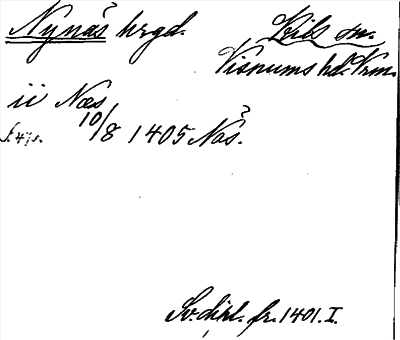 Nynäs hrgd. Kils sn.
Visnums hd. Vrm.
ii Næs
10/8 1405 Näs.
Sv. dipl. fr. 1401. I.